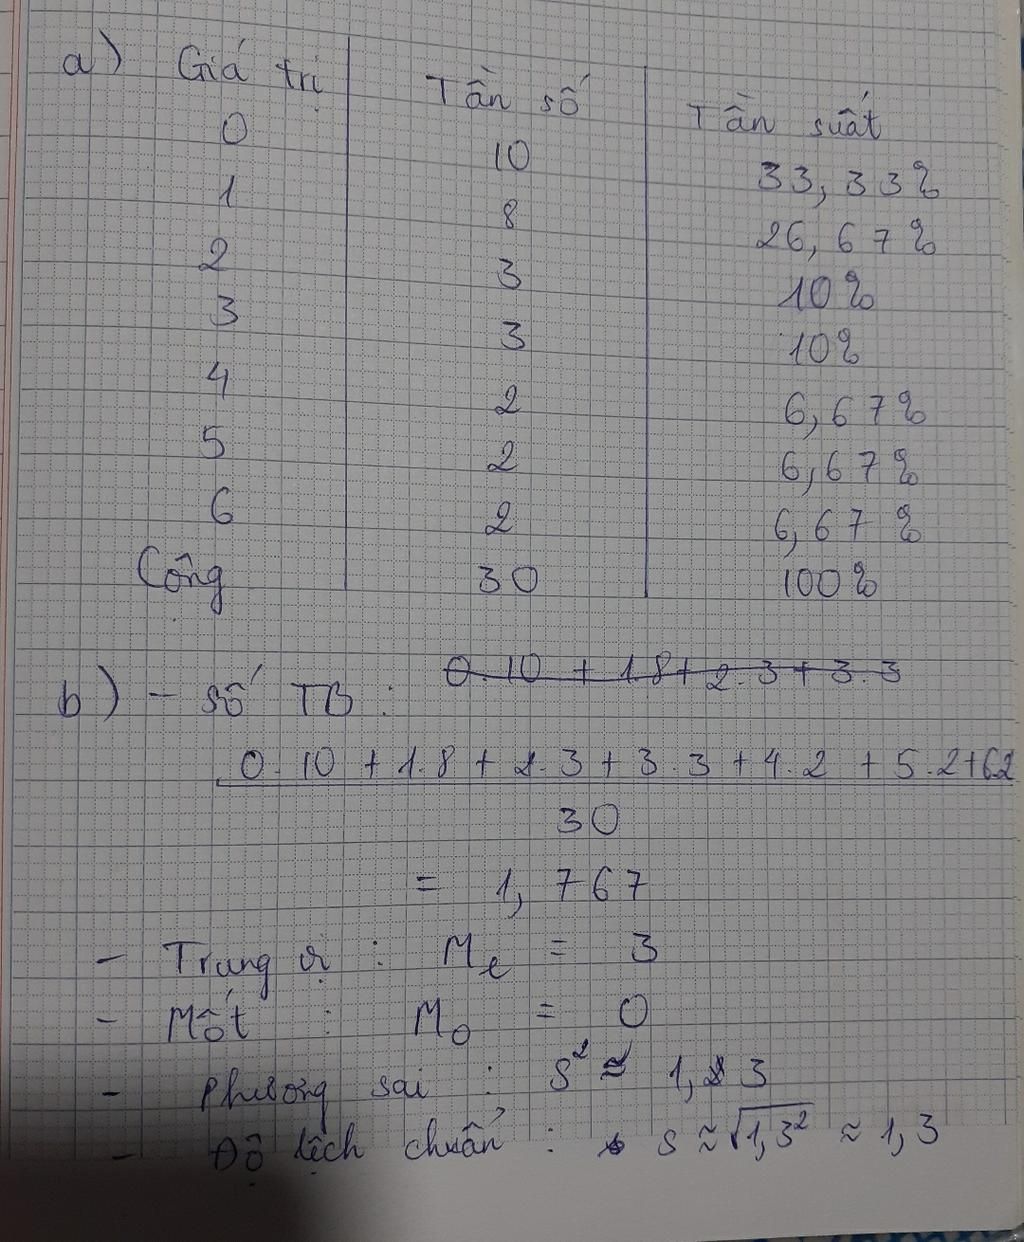 a) Giá trị Tần số Tần suất
0 10 33,33%
1 8 26,67%
2 3 10%
3 3 10%
4 2 6,67%
5 2 6,67%
6 2 6,67%
Cộng 30 100%
0.10 + 1.8 + 2.3 + 3.3
b) - số TB :
0.10 + 1.8 + 2.3 + 3.3 + 4.2 + 5.2+6.2
30
= 1,767
- Trung vị : Me = 3
- Mốt : Mo = 0
- Phương sai : S² ≈ 1,3
- Độ lệch chuẩn : S ≈ √1,3² ≈ 1,3